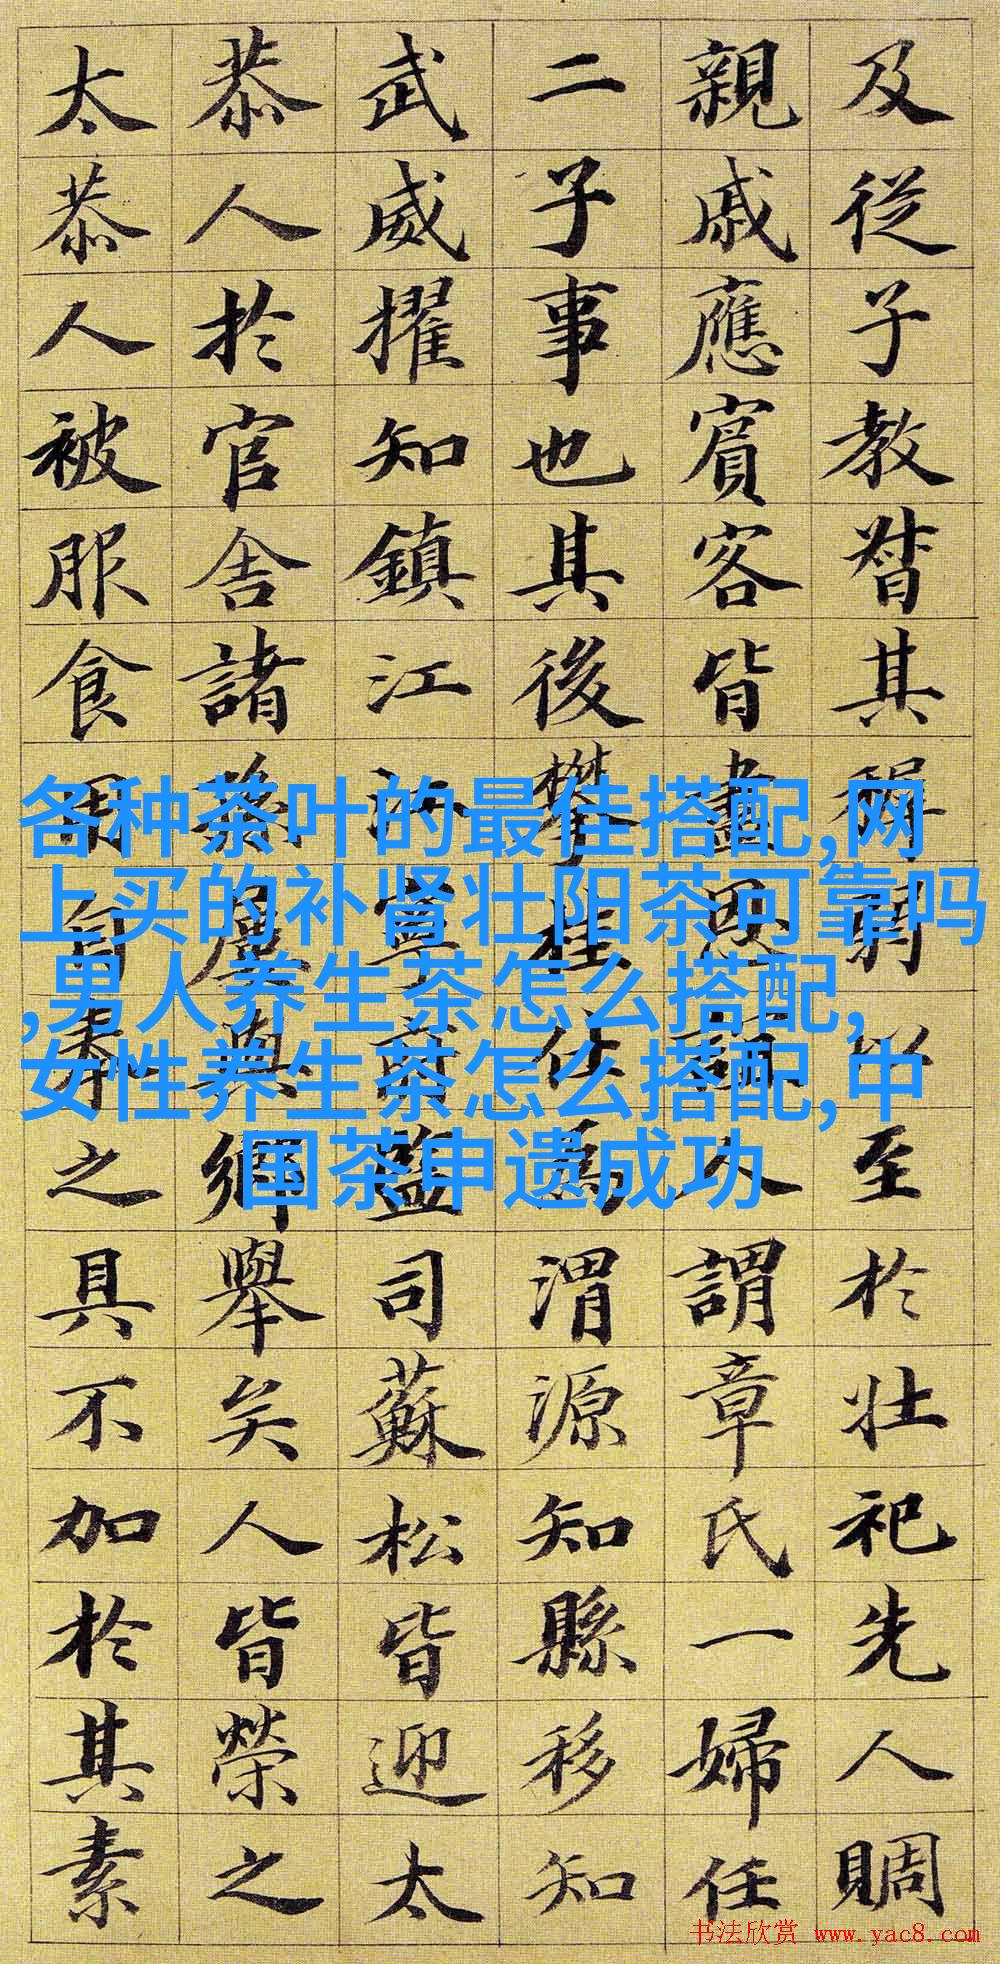 及從子教督其以至於壯祀先人賙
親戚應賓客皆盡恩人謂章氏一婦任
二子事也其後攀桂仕為渭源知縣移知
武威擢知鎮江監司蘇松皆迎太
恭人於官舍諸與鄉舉矣人皆榮之
太恭人被服食用自奉之具不加於其素
各种茶叶的最佳搭配,网
上买的补肾壮阳茶可靠吗
,男人养生茶怎么搭配,
女性养生茶怎么搭配,中
国茶申遗成功
书法欣赏 www.yac8.com